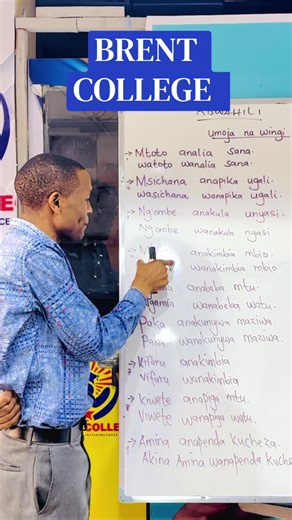 BRENT
COLLEGE
KISWAHILI
Umoja na wingi
Mtoto analia sana.
watoto wanalia sana.
Msichana anapika ugali.
wasichana wanapika ugali.
Ng'ombe anakula unyasi.
Ng'ombe wanakula nyasi.
anakimbia mbio.
wanakimbia mbio
anababa mtu.
Ngamia wanababa watu.
Paka anakunywa maziwa.
Paka wanakunywa maziwa.
Kifaru anakimbia
Vifaru wanakimbia
Kiwete anapiga mtu.
Viwete wanapiga watu.
Amina anapenda kucheza.
Akina Amina wanapenda kuche
COLLEGE